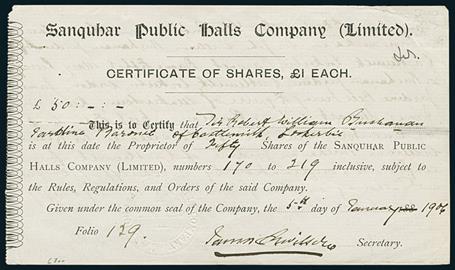 Sanquhar Public Halls Company (Limited).
CERTIFICATE OF SHARES, £1 EACH.
£ 50 : - : -
This is to Certify that Sir Robert William Buchanan
Jardine Baronet of Castlemilk, Lockerbie
is at this date the Proprietor of Fifty Shares of the SANQUHAR PUBLIC
HALLS COMPANY (LIMITED), numbers 170 to 219 inclusive, subject to
the Rules, Regulations, and Orders of the said Company.
Given under the common seal of the Company, the 5th day of January 1906
Folio 129. Secretary.